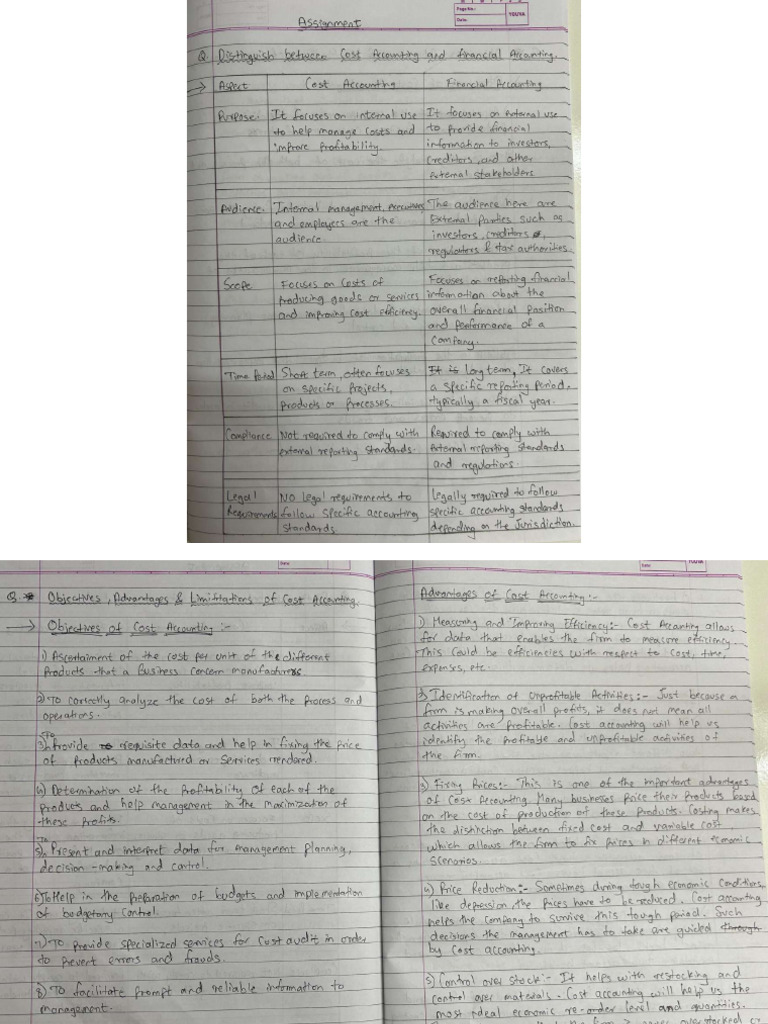 Page No.:
Date:
YOUVA
Assignment
Q. Distinguish between Cost Accounting and Financial Accounting.
→ Aspect Cost Accounting Financial Accounting
Purpose. It focuses on internal use It focuses on external use
to help manage costs and to provide financial
improve profitability. information to investors,
creditors, and other
external stakeholders
Audience. Internal management, executives The audience here are
and employees are the External Parties such as
audience. investors, creditors,
regulators & tax authorities.
Scope Focuses on costs of Focuses on reporting financial
producing goods or services information about the
and improving cost efficiency. overall financial position
and performance of a
company.
Time Period Short term, often focuses It is long term, It covers
on specific projects, a specific reporting period,
products or processes. typically a fiscal year.
Compliance Not required to comply with Required to comply with
external reporting standards. external reporting standards
and regulations.
Legal No legal requirements to Legally required to follow
Requirements follow specific accounting specific accounting standards
standards depending on the Jurisdiction.
Date:
Q. Objectives, Advantages & Limittations of Cost Accounting.
→ Objectives of Cost Accounting :-
1) Ascertaiment of the cost per unit of the different
Products that a Business concern manufactures.
2) To correctly analyze the cost of both the process and
operations.
To
3) Provide requisite data and help in fixing the price
of products manufactured or services rendered.
4) Determination of the profitability of each of the
products and help management in the maximization of
these profits.
To
5) Present and interpret data for management planning,
decision-making and control.
6) To Help in the preparation of budgets and implementation
of budgetary control.
7) To provide specialized services for cost audit in order
to prevent errors and frauds.
8) To facilitate prompt and reliable information to
management.
Date:
YOUVA
Advantages of Cost Accounting :-
1) Measuring and Improving Efficiency:- Cost Accounting allows
for data that enables the firm to measure efficiency.
This could be efficiencies with respect to cost, time,
expenses, etc.
2) Identification of Unprofitable Activities:- Just because a
firm is making overall profits, it does not mean all
activities are profitable. Cost accounting will help us
identify the profitable and unprofitable activities of
the firm.
3) Fixing Prices:- This is one of the important advantages
of Cost Accounting. Many businesses price their products based
on the cost of production of these products. Costing makes
the distinction between fixed cost and variable cost
which allows the firm to fix prices in different economic
scenarios.
4) Price Reduction:- Sometimes during tough economic conditions,
like depression, the prices have to be reduced. Cost accounting
helps the company to survive this tough period. Such
decisions the management has to take are guided through
by cost accounting.
5) Control over stock:- It helps with restocking and
control over materials. Cost accounting will help us the
most ideal economic re-order level and quantities.